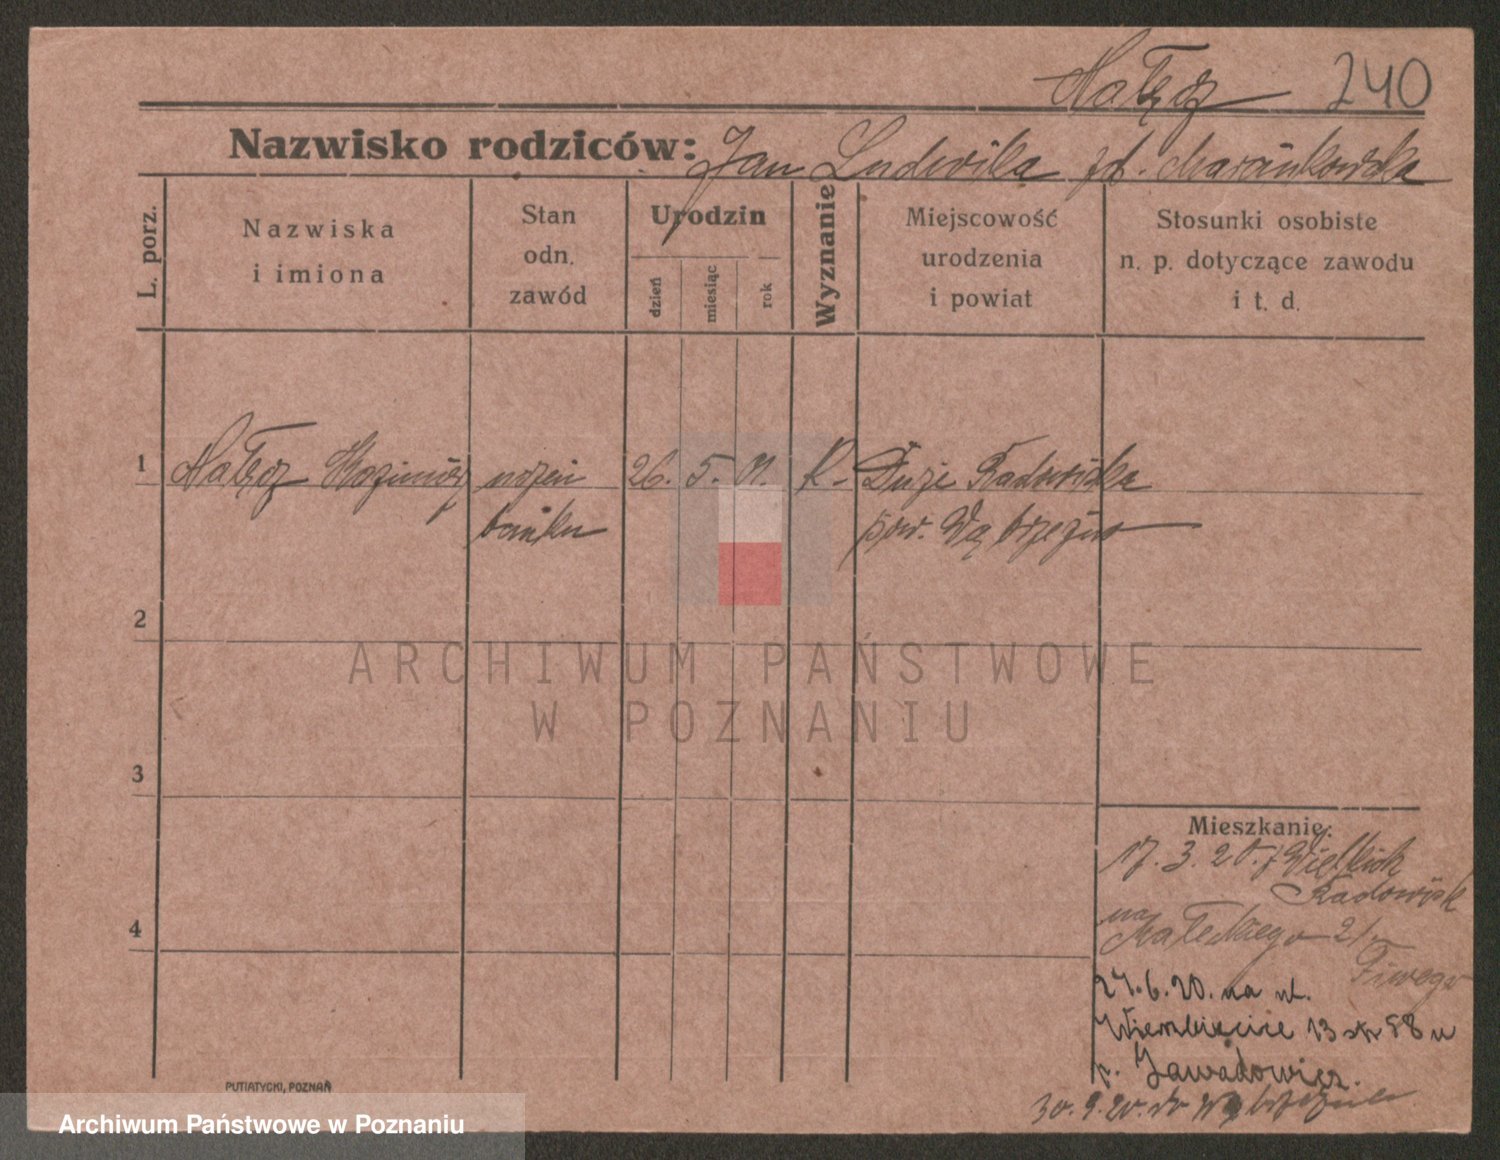 Nałęcz 240
Nazwisko rodziców: Jan Ludwika zd. Marcinkowska
L. porz.
Nazwiska
i imiona
Stan
odn.
zawód
Urodzin
dzień
miesiąc
rok
Wyznanie
Miejscowość
urodzenia
i powiat
Stosunki osobiste
n. p. dotyczące zawodu
i t. d.
1 Nałęcz Kazimierz 26. 5. 01. K. Duże Radowiska
banku pow. Wąbrzeźno
2
ARCHIWUM PAŃSTWOWE
W POZNANIU
3
Mieszkanie:
17. 3. 20. z Wielkich
Radowisk
4
na
Małeckiego 21.
24.6.20. na ul.
Wierzbięcice 13 u
p. Zawadowicz.
30.9.20. do Wąbrzeźna
PUTIATYCKI, POZNAŃ
Archiwum Państwowe w Poznaniu